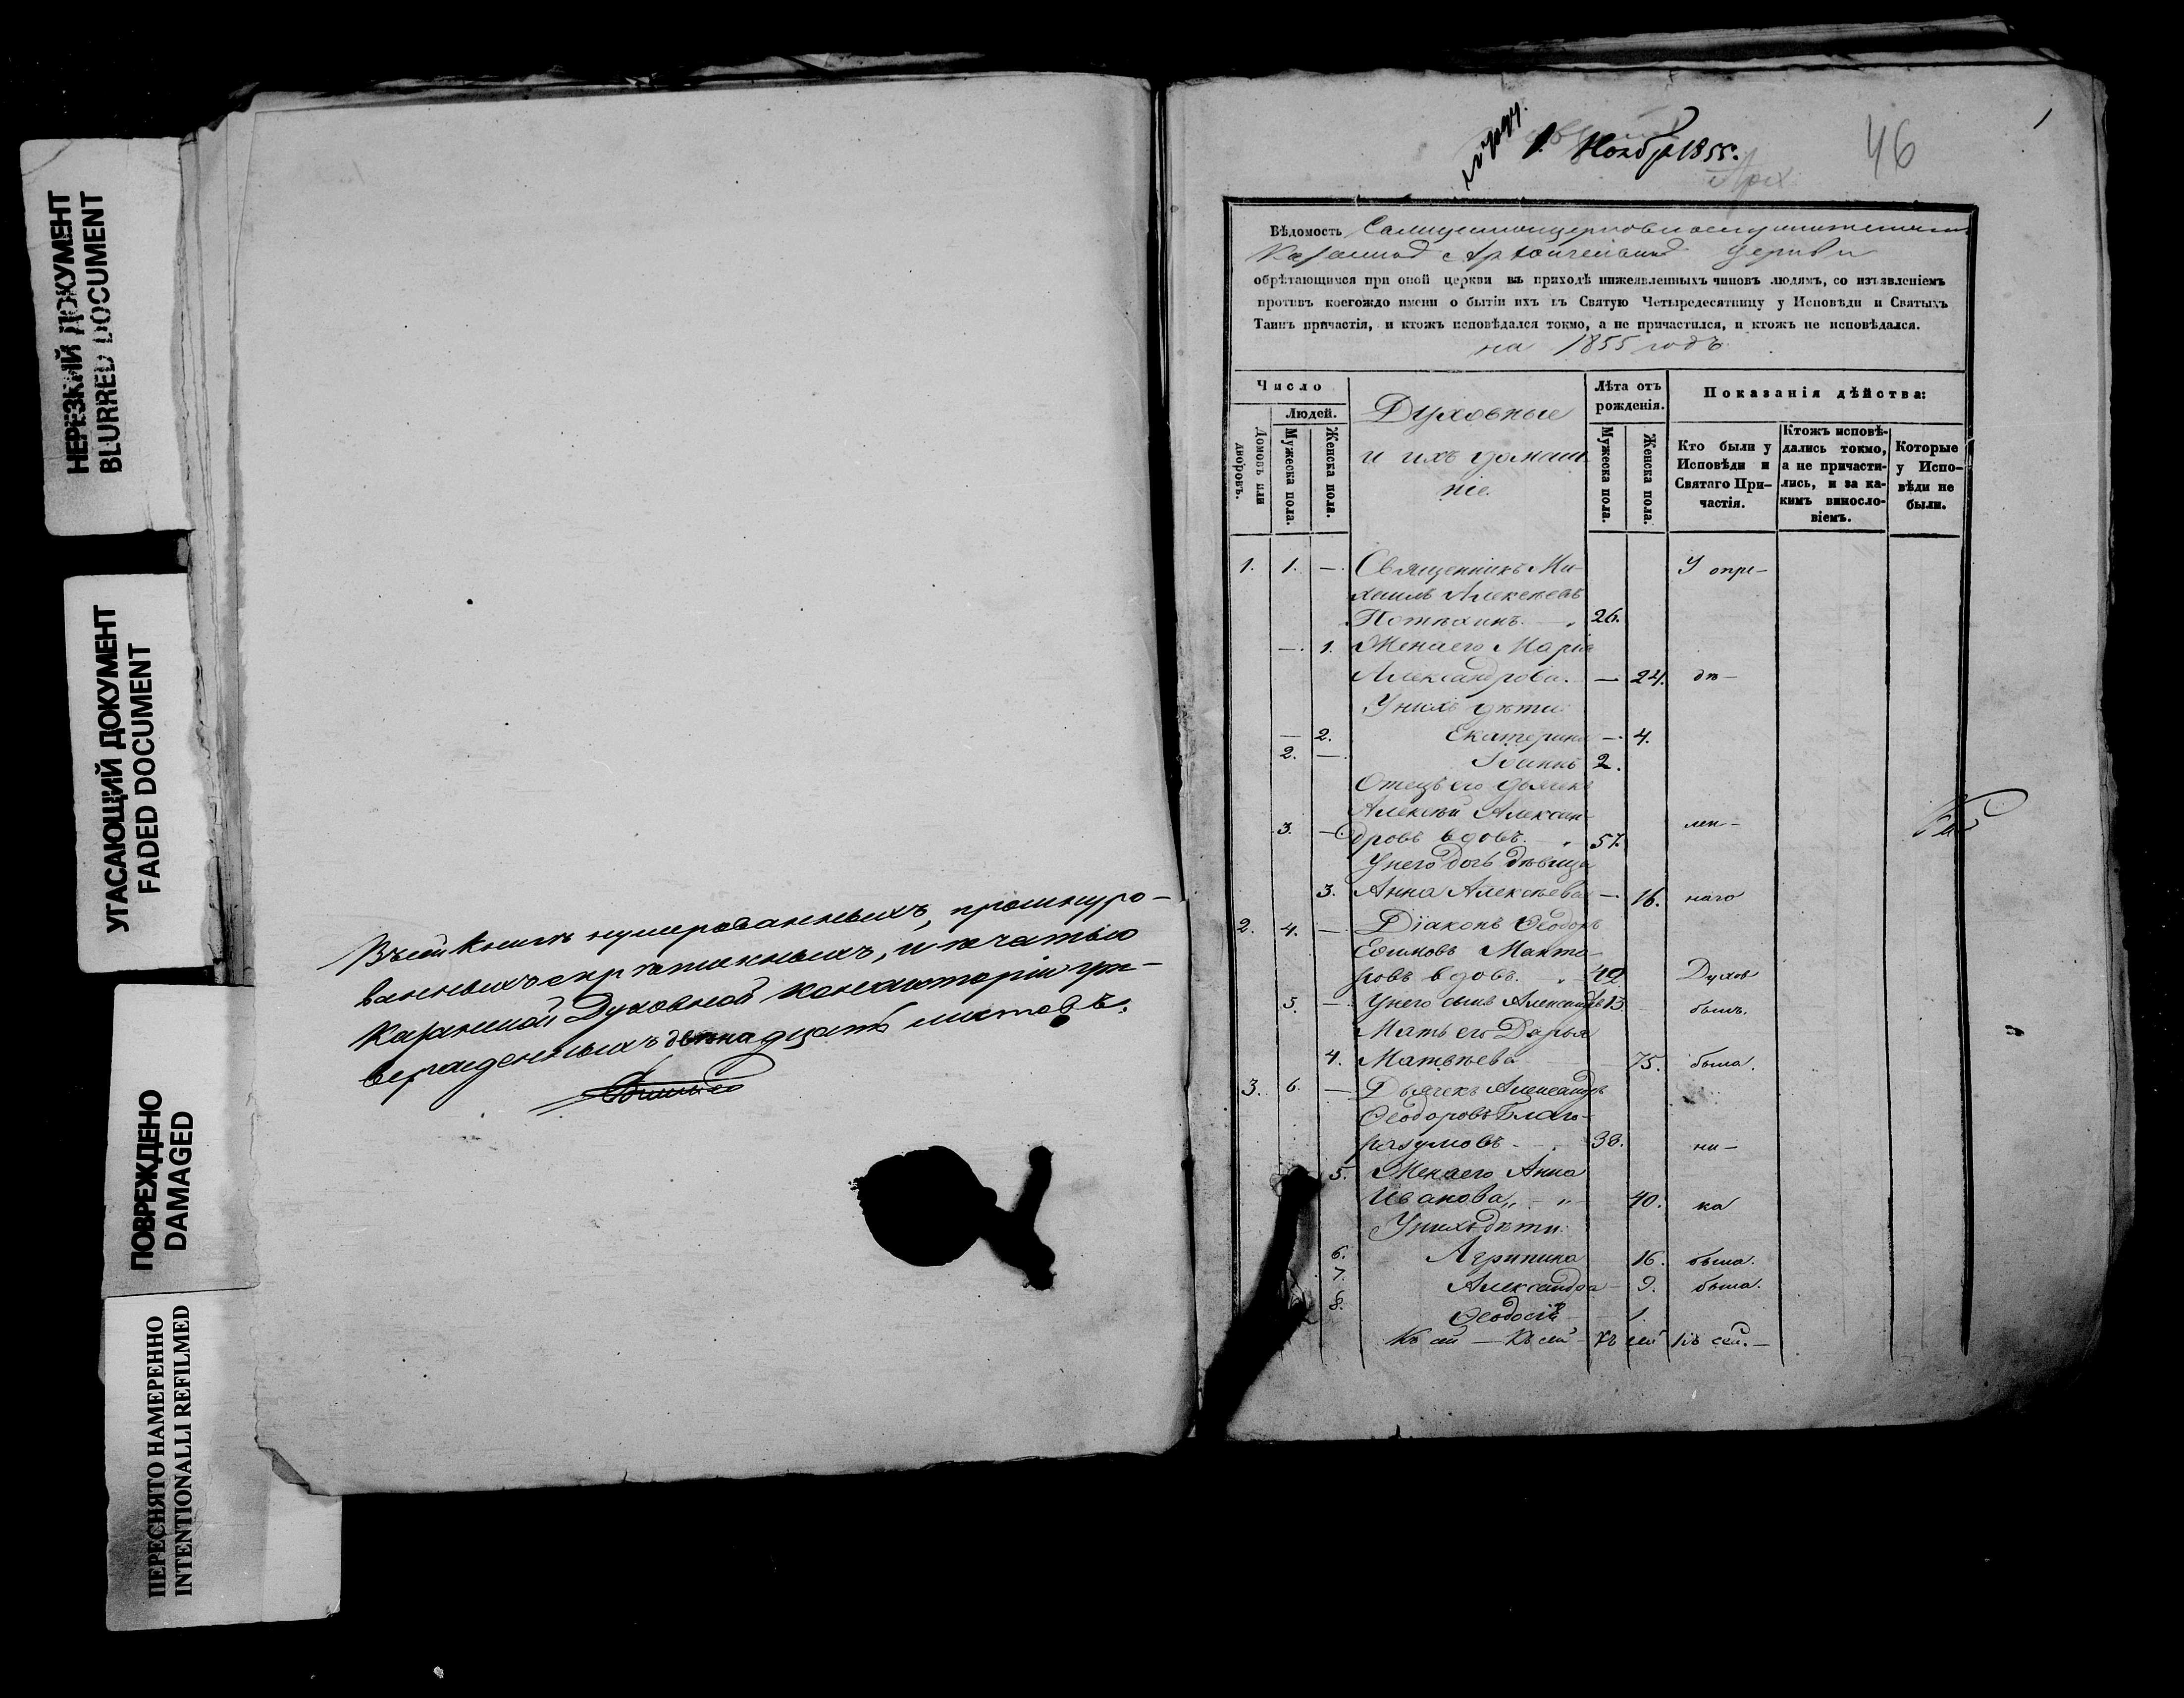 НЕРЕЗКИЙ ДОКУМЕНТ
BLURRED DOCUMENT
УГАСАЮЩИЙ ДОКУМЕНТ
FADED DOCUMENT
ПОВРЕЖДЕНО
DAMAGED
ПЕРЕСНЯТО НАМЕРЕННО
INTENTIONALLI REFILMED
Въ сей книгѣ нумерованныхъ, прошнуро-
ванныхъ скрѣпленныхъ, и печатью
Казанской Духовной Консисторіи ут-
вержденныхъ двѣнадцать листовъ.
Ноябр 1855.
46
1
Вѣдомость
Казанской Архангельской церкви
обрѣтающимся при оной церкви въ приходѣ нижеявленныхъ чиновъ людямъ, со изъявленіемъ
противъ коегождо имени о бытіи ихъ въ Святую Четыредесятницу у Исповѣди и Святыхъ
Таинъ причастія, и ктожъ исповѣдался токмо, а не причастился, и ктожъ не исповѣдался.
на 1855 годъ
Число
Людей.
Домовъ или дворовъ.
Мужеска пола.
Женска пола.
Духовные
и ихъ домаш-
ніе.
Лѣта отъ рожденія.
Мужеска пола.
Женска пола.
Показанія дѣйства:
Кто были у Исповѣди и Святаго При-частія.
Ктожъ исповѣ-дались токмо, а не причасти-лись, и за ка-кимъ виносло-віемъ.
Которые у Испо-вѣди не были.
1. 1. — Священникъ Ми- У опре-
хаилъ Алексѣевъ
Потѣхинъ. 26.
— 1. Жена его Марія
Александрова. — 24. дѣ-
У нихъ дѣти:
— 2. Екатерина — 4.
2. — Іоаннъ 2.
Отецъ его дьячекъ
Алексѣй Алексан-
3. — дровъ вдовъ. 57. лен-
У него дочь дѣвица
3. Анна Алексѣева — 16. наго
2. 4. — Діаконъ Ѳеодоръ
Ефимовъ
ровъ вдовъ. Духов
5. — У него сынъ Александръ 13 былъ.
Мать его Дарья
4. Матвѣева 75. была.
3. 6. — Дьячекъ Александръ
Ѳеодоровъ Благо-
разумовъ 38. ни-
5. Жена его Анна
Иванова 40. ка
У нихъ дѣти:
6. Агрипина 16. была.
7. Александра 9. была.
8. Ѳеодосія 1.
Къ сей — Къ сей Къ сей Къ сей. —